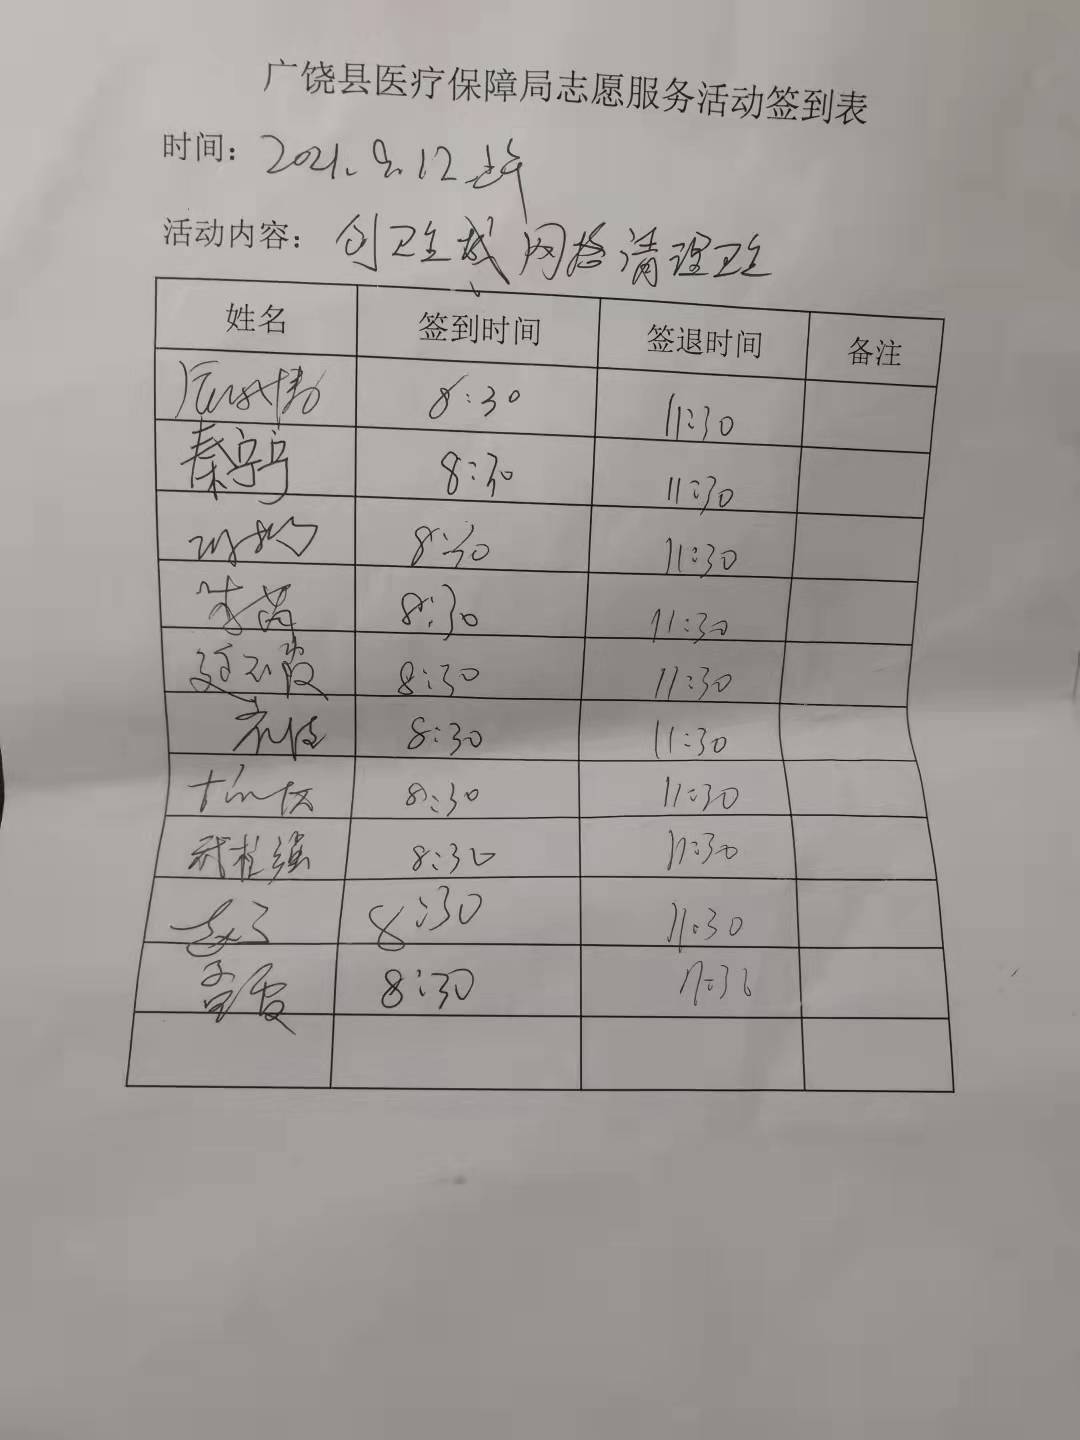 广饶县医疗保障局志愿服务活动签到表
时间：2021.9.12 上午
活动内容：创卫生城 网格清理卫生
姓名 签到时间 签退时间 备注
8:30 11:30
秦宁宁 8:30 11:30
8:30 11:30
李芮 8:30 11:30
霞 8:30 11:30
8:30 11:30
8:30 11:30
武桂强 8:30 11:30
8:30 11:30
孟霞 8:30 11:30